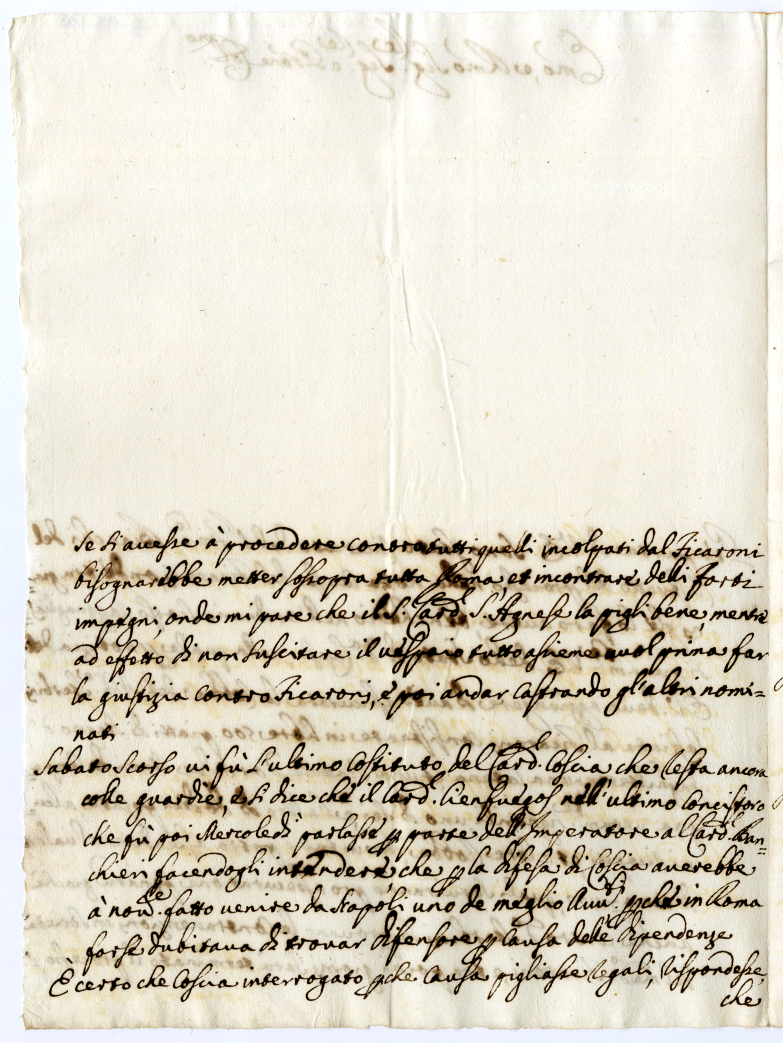 se si auesse à procedere contro tutti quelli incolpati dal Ficaroni
bisognarebbe metter sossopra tutta Roma et incontrare delli forti
impegni, onde mi pare che il S. Card. S. Agnese la pigli bene, mentre
ad effetto di non suscitare il uespaio tutto assieme uuol prima far
la giustizia contro Ficaroni, e poi andar castrando gl'altri nomi=
nati
Sabato Scorso ui fù l'ultimo Costituto del Card. Coscia che resta ancora
colle guardie, e si dice che il Card. Cienfuegos nell'ultimo Concistoro
che fù poi Mercoledì parlasse p parte dell'Imperatore al Card. Ban=
chieri facendogli intendere che p la difesa di Coscia auerebbe
à nome fatto uenire da Napoli uno de meglio Auu. pche in Roma
forse dubitaua di trouar difensore p causa delle dipendenze
È certo che Coscia interrogato pche causa pigliasse regali, rispondesse,
che